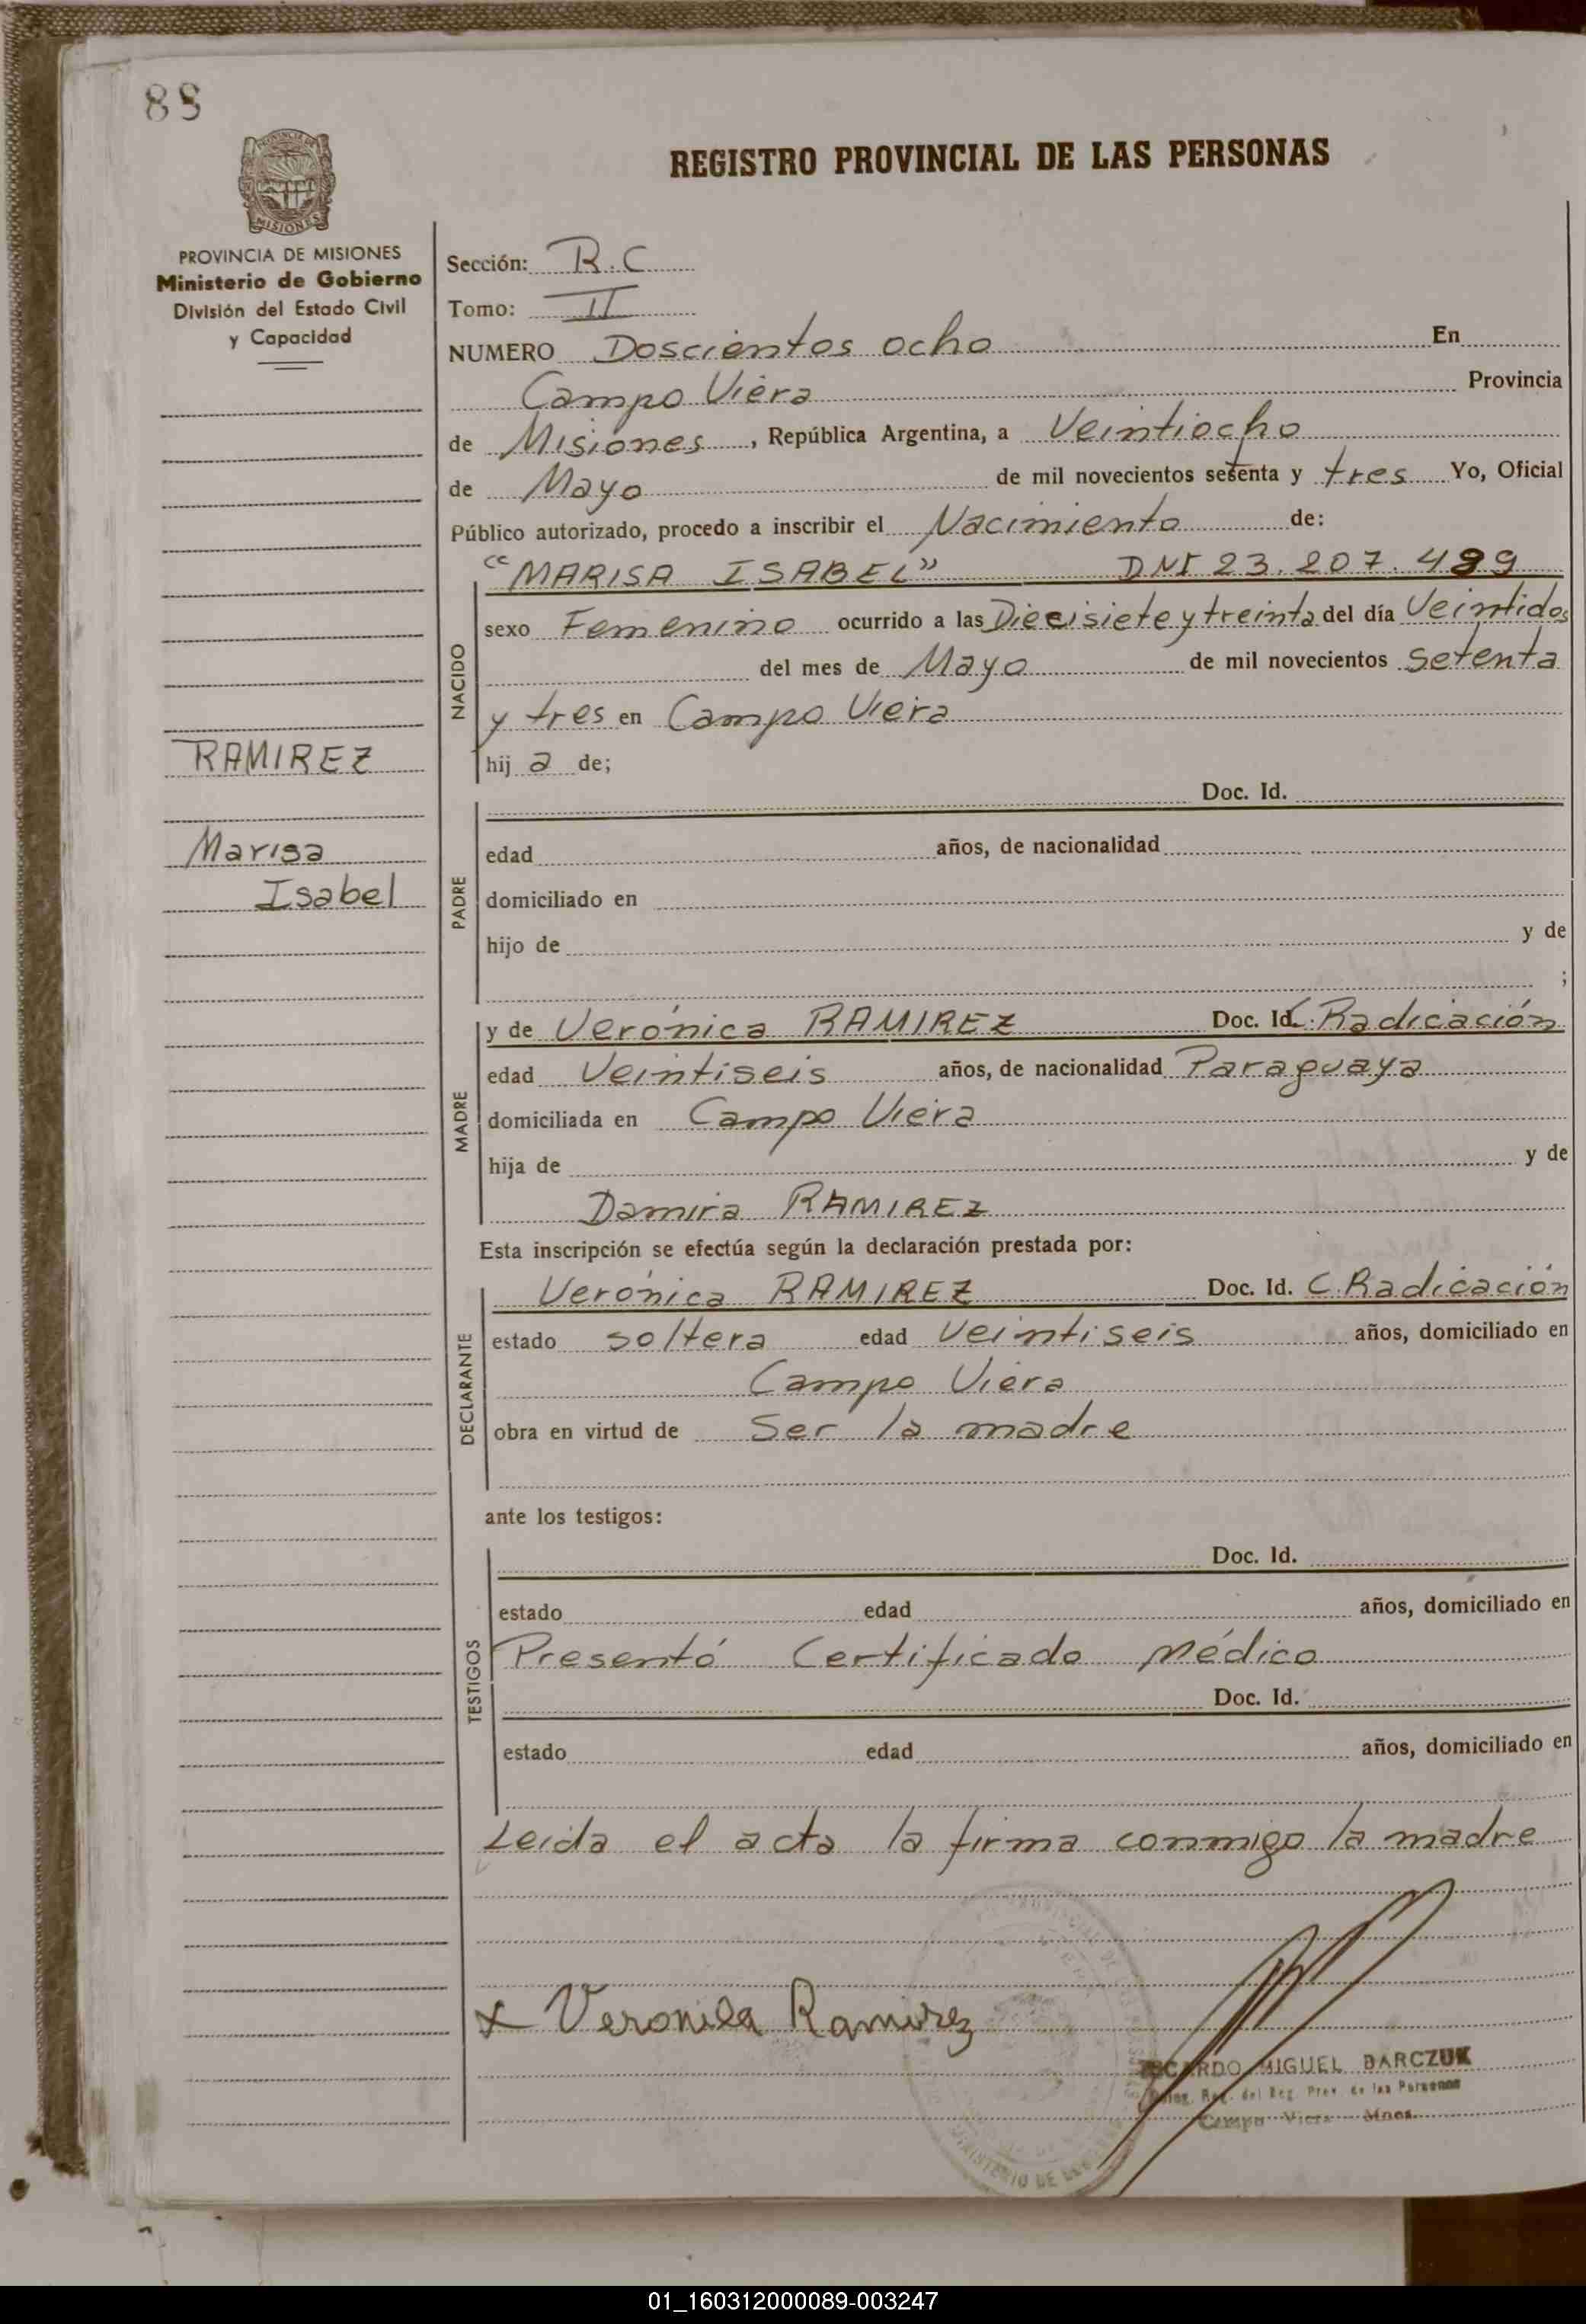 88
PROVINCIA DE MISIONES
Ministerio de Gobierno
División del Estado Civil
y Capacidad
RAMIREZ
Marisa
Isabel
REGISTRO PROVINCIAL DE LAS PERSONAS
Sección: R.C
Tomo: II
NUMERO Doscientos ocho En
Campo Viera Provincia
de Misiones, República Argentina, a Veintiocho
de Mayo de mil novecientos setenta y tres Yo, Oficial
Público autorizado, procedo a inscribir el Nacimiento de:
"MARISA ISABEL" DNI 23.207.489
NACIDO
sexo Femenino ocurrido a las Diecisiete y treinta del día Veintidos
del mes de Mayo de mil novecientos setenta
y tres en Campo Viera
hij a de;
PADRE
Doc. Id.
edad años, de nacionalidad
domiciliado en
hijo de y de
;
MADRE
y de Verónica RAMIREZ Doc. Id. C. Radicación
edad Veintiseis años, de nacionalidad Paraguaya
domiciliada en Campo Viera
hija de y de
Damira RAMIREZ
Esta inscripción se efectúa según la declaración prestada por:
DECLARANTE
Verónica RAMIREZ Doc. Id. C. Radicación
estado soltera edad veintiseis años, domiciliado en
Campo Viera
obra en virtud de ser la madre
ante los testigos:
TESTIGOS
Doc. Id.
estado edad años, domiciliado en
Presentó Certificado Médico
Doc. Id.
estado edad años, domiciliado en
Leida el acta la firma conmigo la madre
x Veronica Ramirez
MIGUEL BARCZUK
del Reg. Prov. de las Personas
Campo Viera Mnes.
MINISTERIO DE
01_160312000089-003247